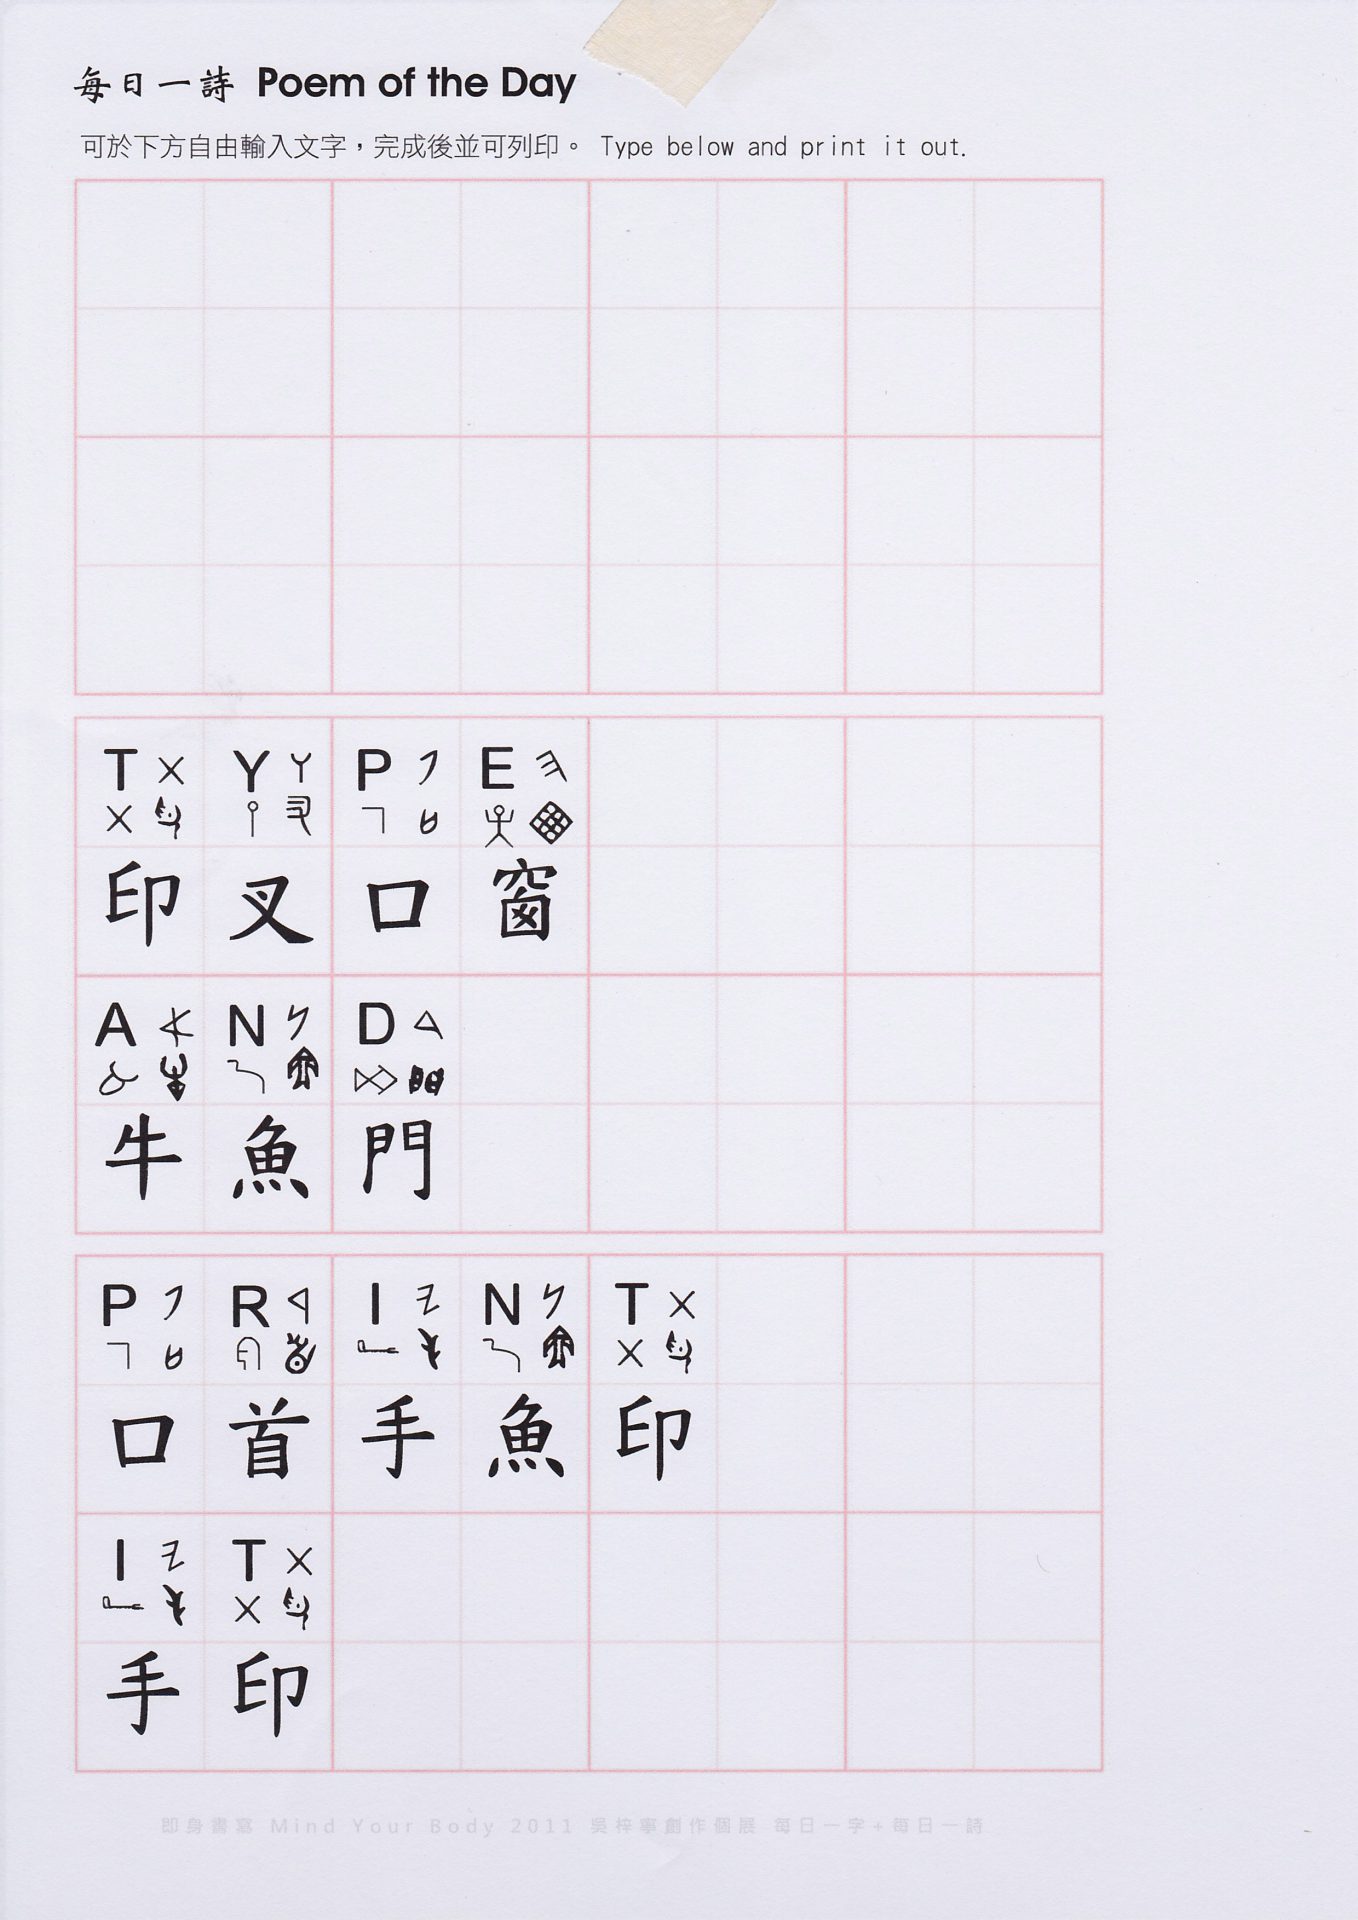 每日一詩 Poem of the Day
可於下方自由輸入文字，完成後並可列印。 Type below and print it out.
T Y P E
印 叉 口 窗
A N D
牛 魚 門
P R I N T
口 首 手 魚 印
I T
手 印
即身書寫 Mind Your Body 2011 吳梓寧創作個展 每日一字+每日一詩